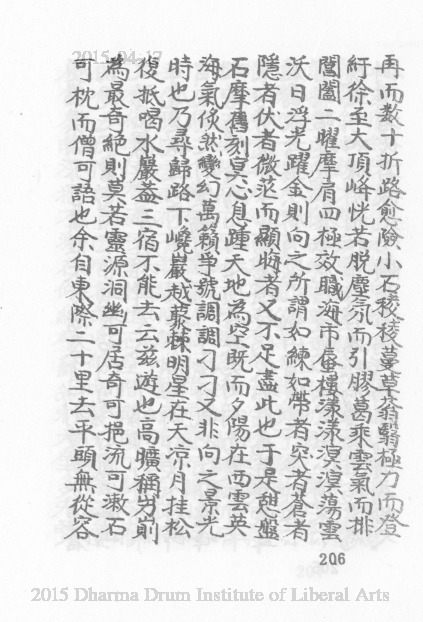 2015-04-17
再而数十折路愈險小石稜稜蔓草蓊翳極力而登
紆徐至大頂峰恍若脫塵氛而引膠葛乘雲氣而排
閶闔二曜摩肩四極效職海市蜃樓漾漾溟溟蕩雲
沃日浮光躍金則向之所謂如練如帶者突者蒼者
隱者伏者微茫而顯晦者又不足盡此也于是憩盤
石摩舊刻莫心息踵天地為空既而夕陽在西雲英
海氣倐然變幻萬籟爭號調調刁刁又非向之景光
時也乃尋歸路下嶢巖越藜棘明星在天凉月挂松
復抵喝水巖盖三宿不能去云兹遊也高曠稱屴崱
為最奇絕則莫若靈源洞幽可居奇可挹流可漱石
可枕而僧可語也余自東際二十里去平頭無從容
206
2015 Dharma Drum Institute of Liberal Arts